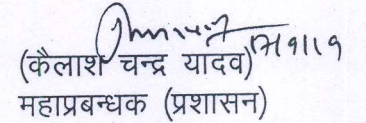 (कैलाश चन्द्र यादव)
महाप्रबन्धक (प्रशासन)